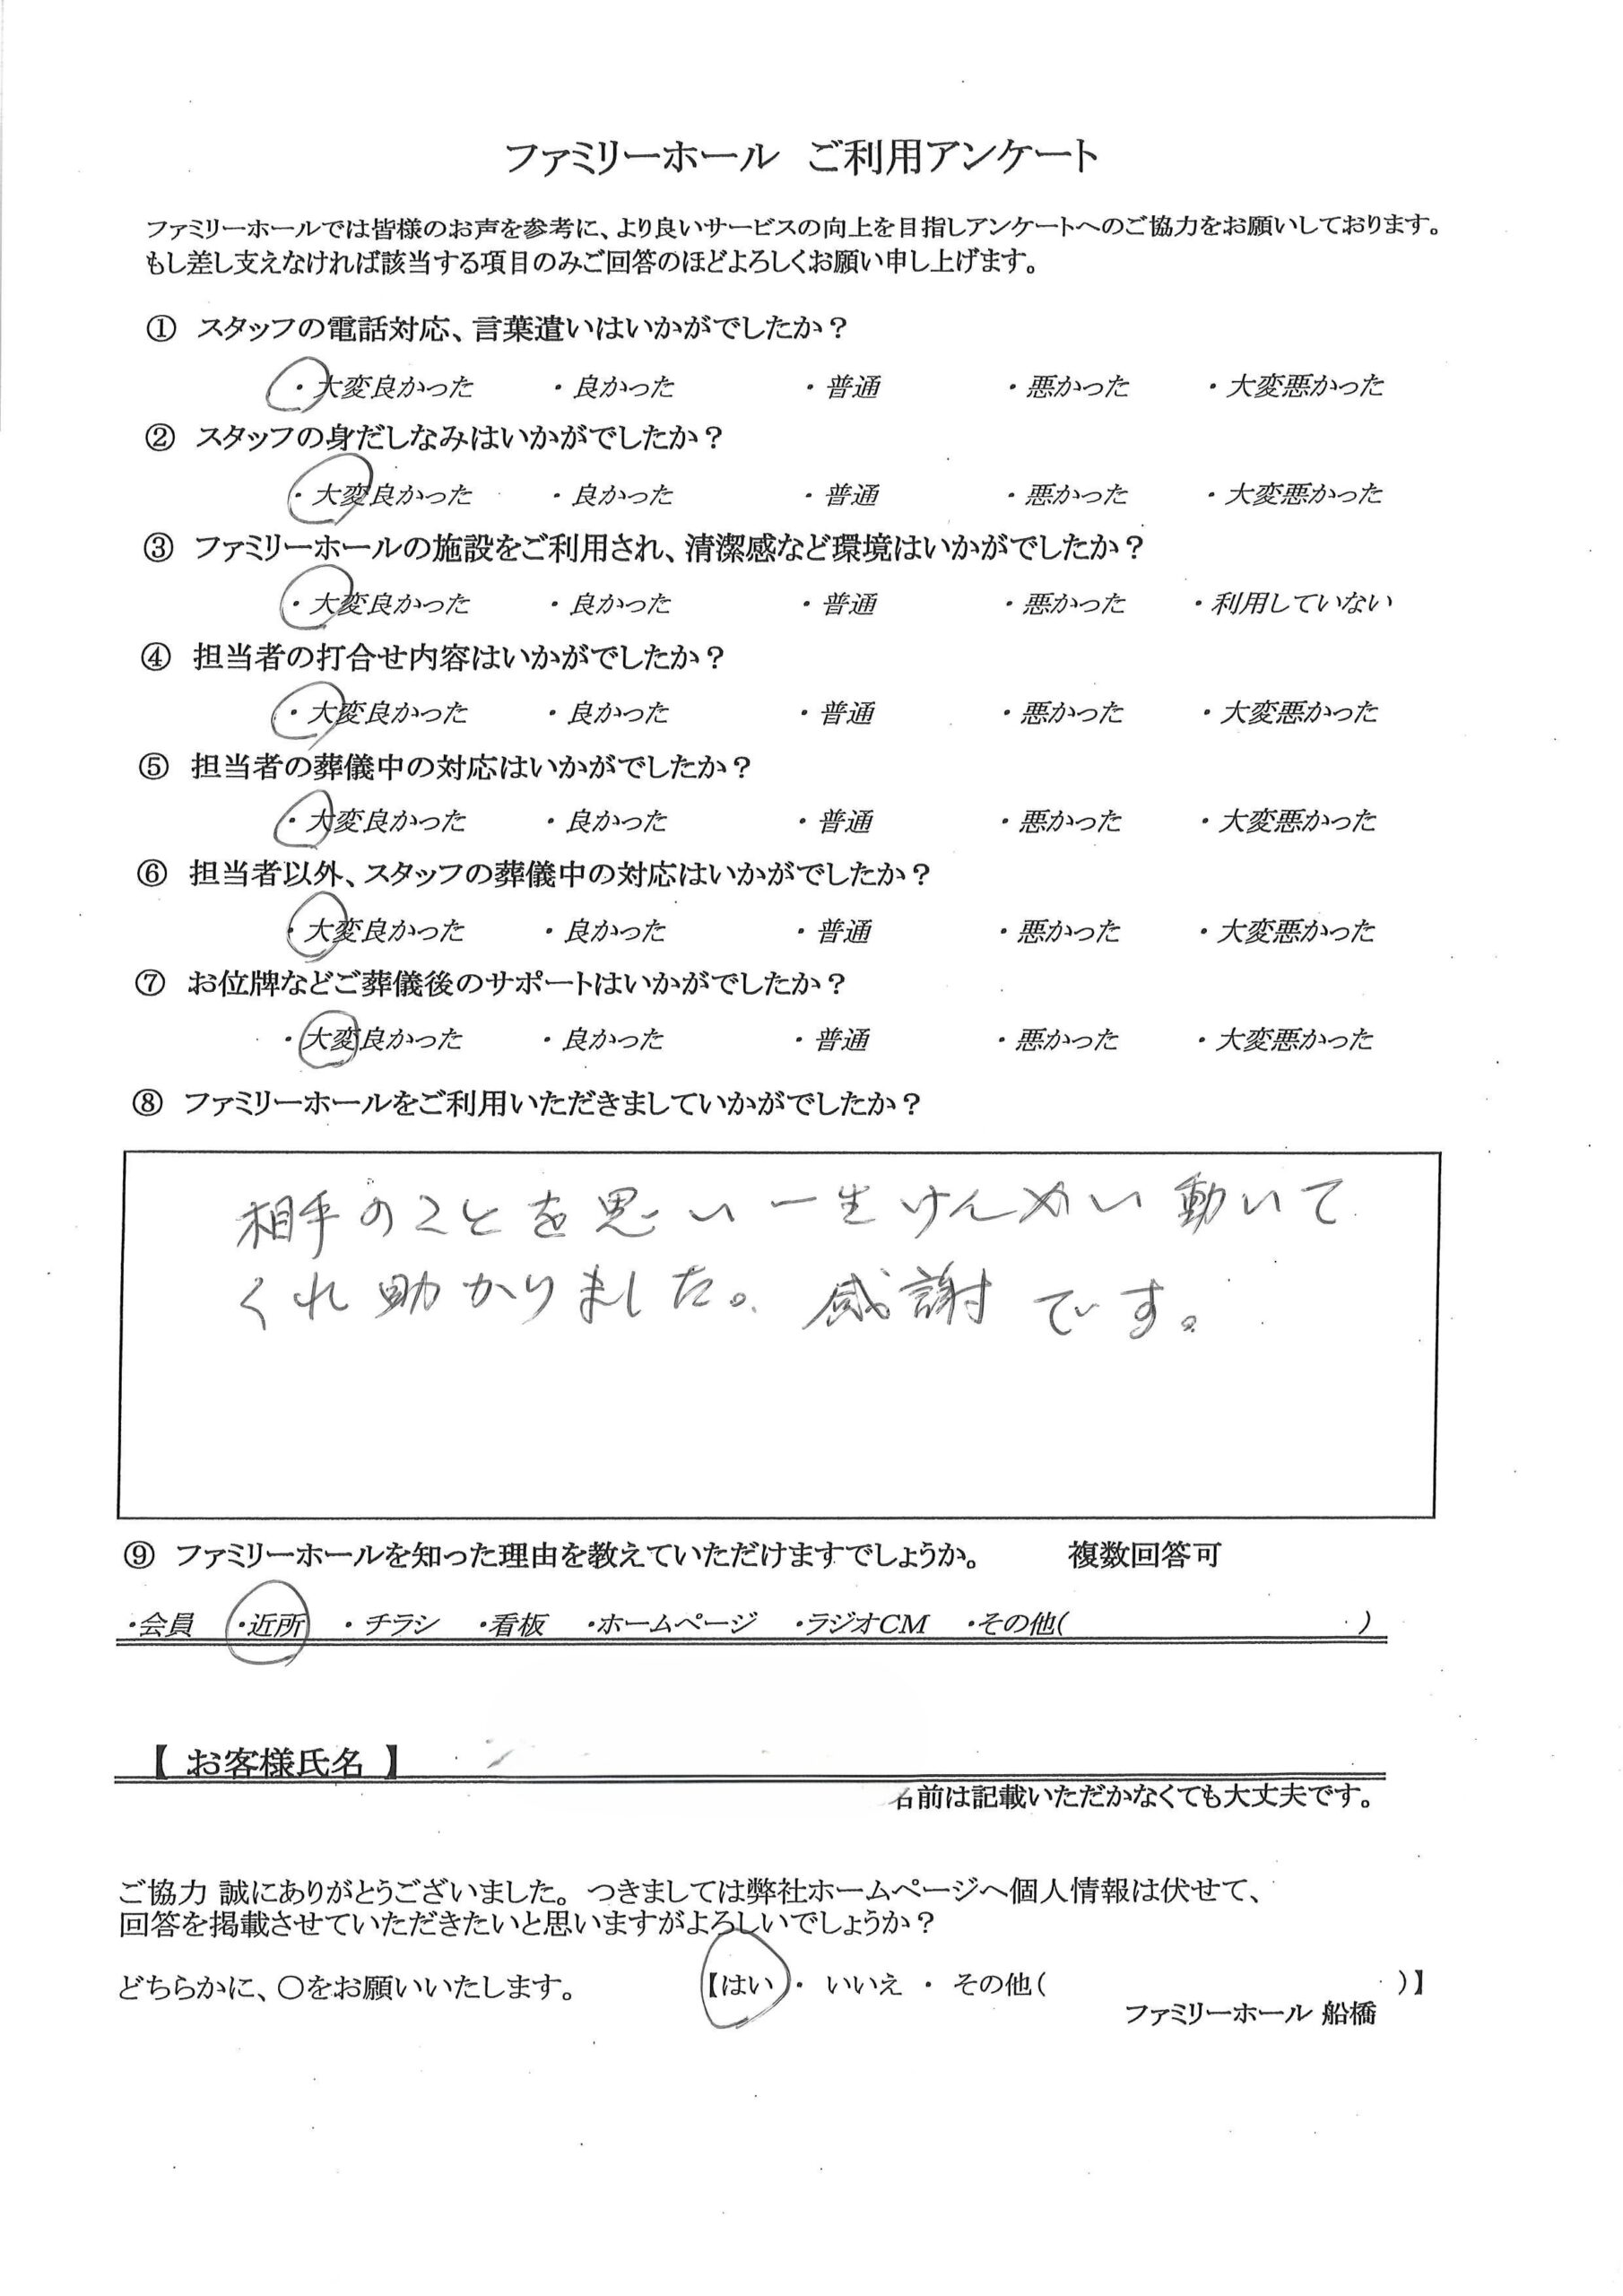 ファミリーホール ご利用アンケート
ファミリーホールでは皆様のお声を参考に、より良いサービスの向上を目指しアンケートへのご協力をお願いしております。
もし差し支えなければ該当する項目のみご回答のほどよろしくお願い申し上げます。
① スタッフの電話対応、言葉遣いはいかがでしたか？
・大変良かった ・良かった ・普通 ・悪かった ・大変悪かった
② スタッフの身だしなみはいかがでしたか？
・大変良かった ・良かった ・普通 ・悪かった ・大変悪かった
③ ファミリーホールの施設をご利用され、清潔感など環境はいかがでしたか？
・大変良かった ・良かった ・普通 ・悪かった ・利用していない
④ 担当者の打合せ内容はいかがでしたか？
・大変良かった ・良かった ・普通 ・悪かった ・大変悪かった
⑤ 担当者の葬儀中の対応はいかがでしたか？
・大変良かった ・良かった ・普通 ・悪かった ・大変悪かった
⑥ 担当者以外、スタッフの葬儀中の対応はいかがでしたか？
・大変良かった ・良かった ・普通 ・悪かった ・大変悪かった
⑦ お位牌などご葬儀後のサポートはいかがでしたか？
・大変良かった ・良かった ・普通 ・悪かった ・大変悪かった
⑧ ファミリーホールをご利用いただきましていかがでしたか？
相手のことを思い一生けんめい動いて
くれ助かりました。感謝です。
⑨ ファミリーホールを知った理由を教えていただけますでしょうか。 複数回答可
・会員 ・近所 ・チラシ ・看板 ・ホームページ ・ラジオCM ・その他( )
【 お客様氏名 】
名前は記載いただかなくても大丈夫です。
ご協力 誠にありがとうございました。つきましては弊社ホームページへ個人情報は伏せて、
回答を掲載させていただきたいと思いますがよろしいでしょうか？
どちらかに、〇をお願いいたします。 【はい ・ いいえ ・ その他( )】
ファミリーホール 船橋